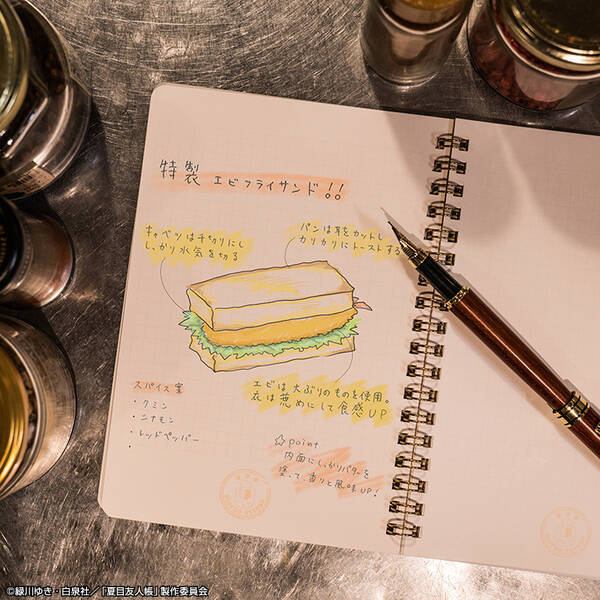 特製 エビフライサンド!!
キャベツは千切りにし
しっかり水気を切る
パンは耳をカットし
カリカリにトーストする
エビは大ぶりのものを使用。
衣は荒めにして食感UP
スパイス案
・クミン
・シナモン
・レッドペッパー
・
☆point
内面にしっかりバターを
塗って、香りと風味UP!
©緑川ゆき・白泉社/「夏目友人帳」製作委員会